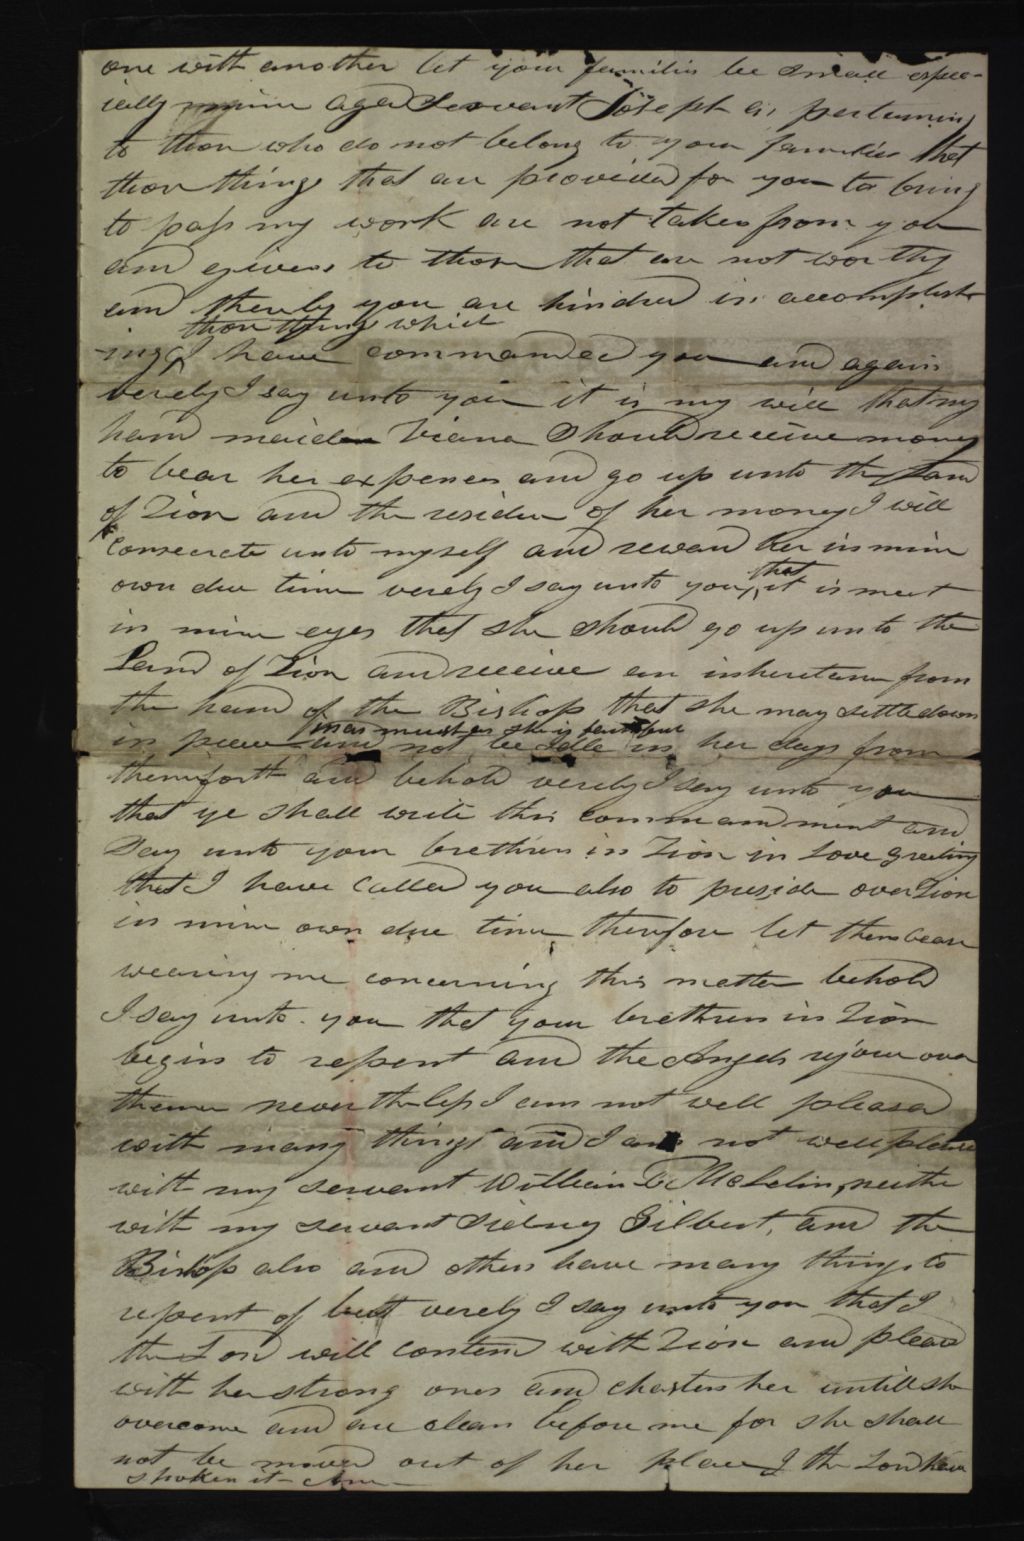 one with another let your families be small espec-
ially mine aged Servant Joseph as pertaining
to those who do not belong to your families that
those things that are provided for you to bring
to pass my work are not taken from you
and given to those that are not worthy
and thereby you are hindred in accomplish
those things which
-ing I have commanded you and again
verely I say unto you it is my will that my
hand maiden Viana Should receive money
to bear her expences and go up unto the Land
of Zion and the residue of her money I will
consecrate unto myself and reward her in mine
own due time verely I say unto you that it is meet
in mine eyes that she should go up unto the
Land of Zion and receive an inheritance from
the hand of the Bishop that she may settle down
in peace inasmuch as she is faithful and not be Idle in her days from
thenceforth and behold verely I say unto you
that ye shall write this commandment and
Say unto your brethren in Zion in Love greeting
that I have Called you also to preside over Zion
in mine own due time therefore let them cease
wearing me concerning this matter behold
I say unto you that your brethren in Zion
begins to repent and the Angels rejoice over
them never the less I am not well pleased
with many things and I am not well pleased
with my servant William E McLelin, neither
with my servant Sidney Gilbert, and the
Bishop also and others have many things to
repent of but verely I say unto you that I
the Lord will contend with Zion and plead
with her strong ones and chasten her untill she
overcome and are clean before me for she shall
not be moved out of her place I the Lord have
spoken it Amen